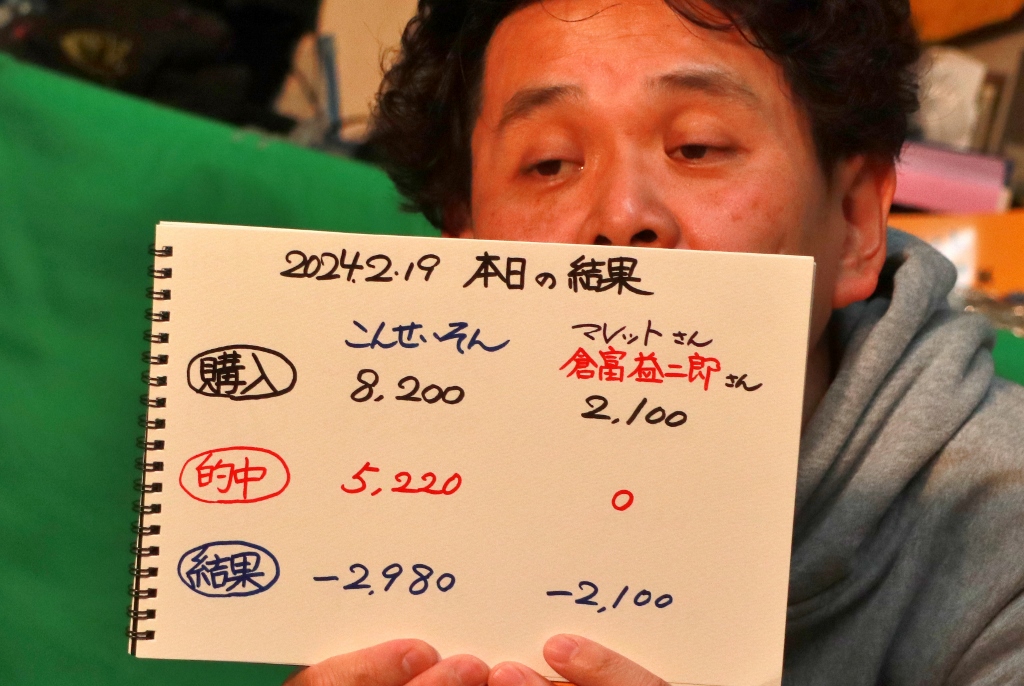 2024.2.19 本日の結果
こんせいそん マレットさん
倉富益二郎さん
購入 8,200 2,100
的中 5,220 0
結果 -2,980 -2,100